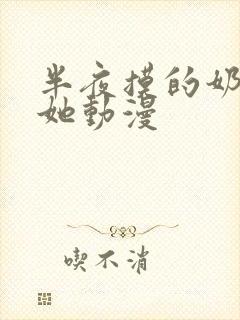 半夜摸的奶
她動漫
喫不消